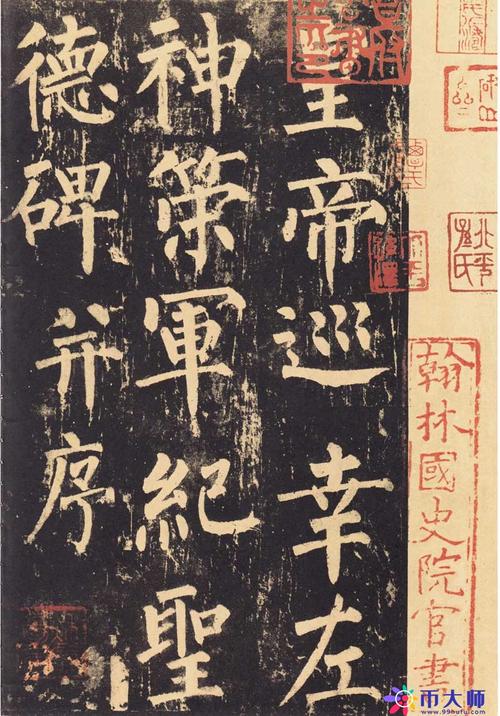 皇帝巡幸左
神策軍紀聖
德碑并序
翰林國史院官書
北平
孫氏
币大师
www.99bufu.com